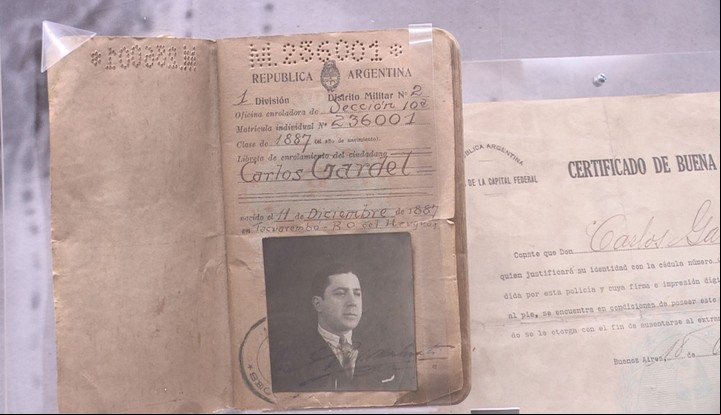 M.236001*
REPUBLICA ARGENTINA
1 División Distrito Militar Nº 2
Oficina enroladora de Sección 10ª
Matrícula individual Nº 236001
Clase de 1887 (el año de nacimiento).
Libreta de enrolamiento del ciudadano
Carlos Gardel
nacido el 11 de Diciembre de 1887
en Tacuarembo - R.O. del Uruguay
BLICA ARGENTINA
DE LA CAPITAL FEDERAL
CERTIFICADO DE BUENA
Conste que Don Carlos Ga
quien justificará su identidad con la cédula número
dida por esta policía y cuya firma e impresión digi
al pie, se encuentra en condiciones de poseer este
do se le otorga con el fin de ausentarse al extran
Buenos Aires, 18 de